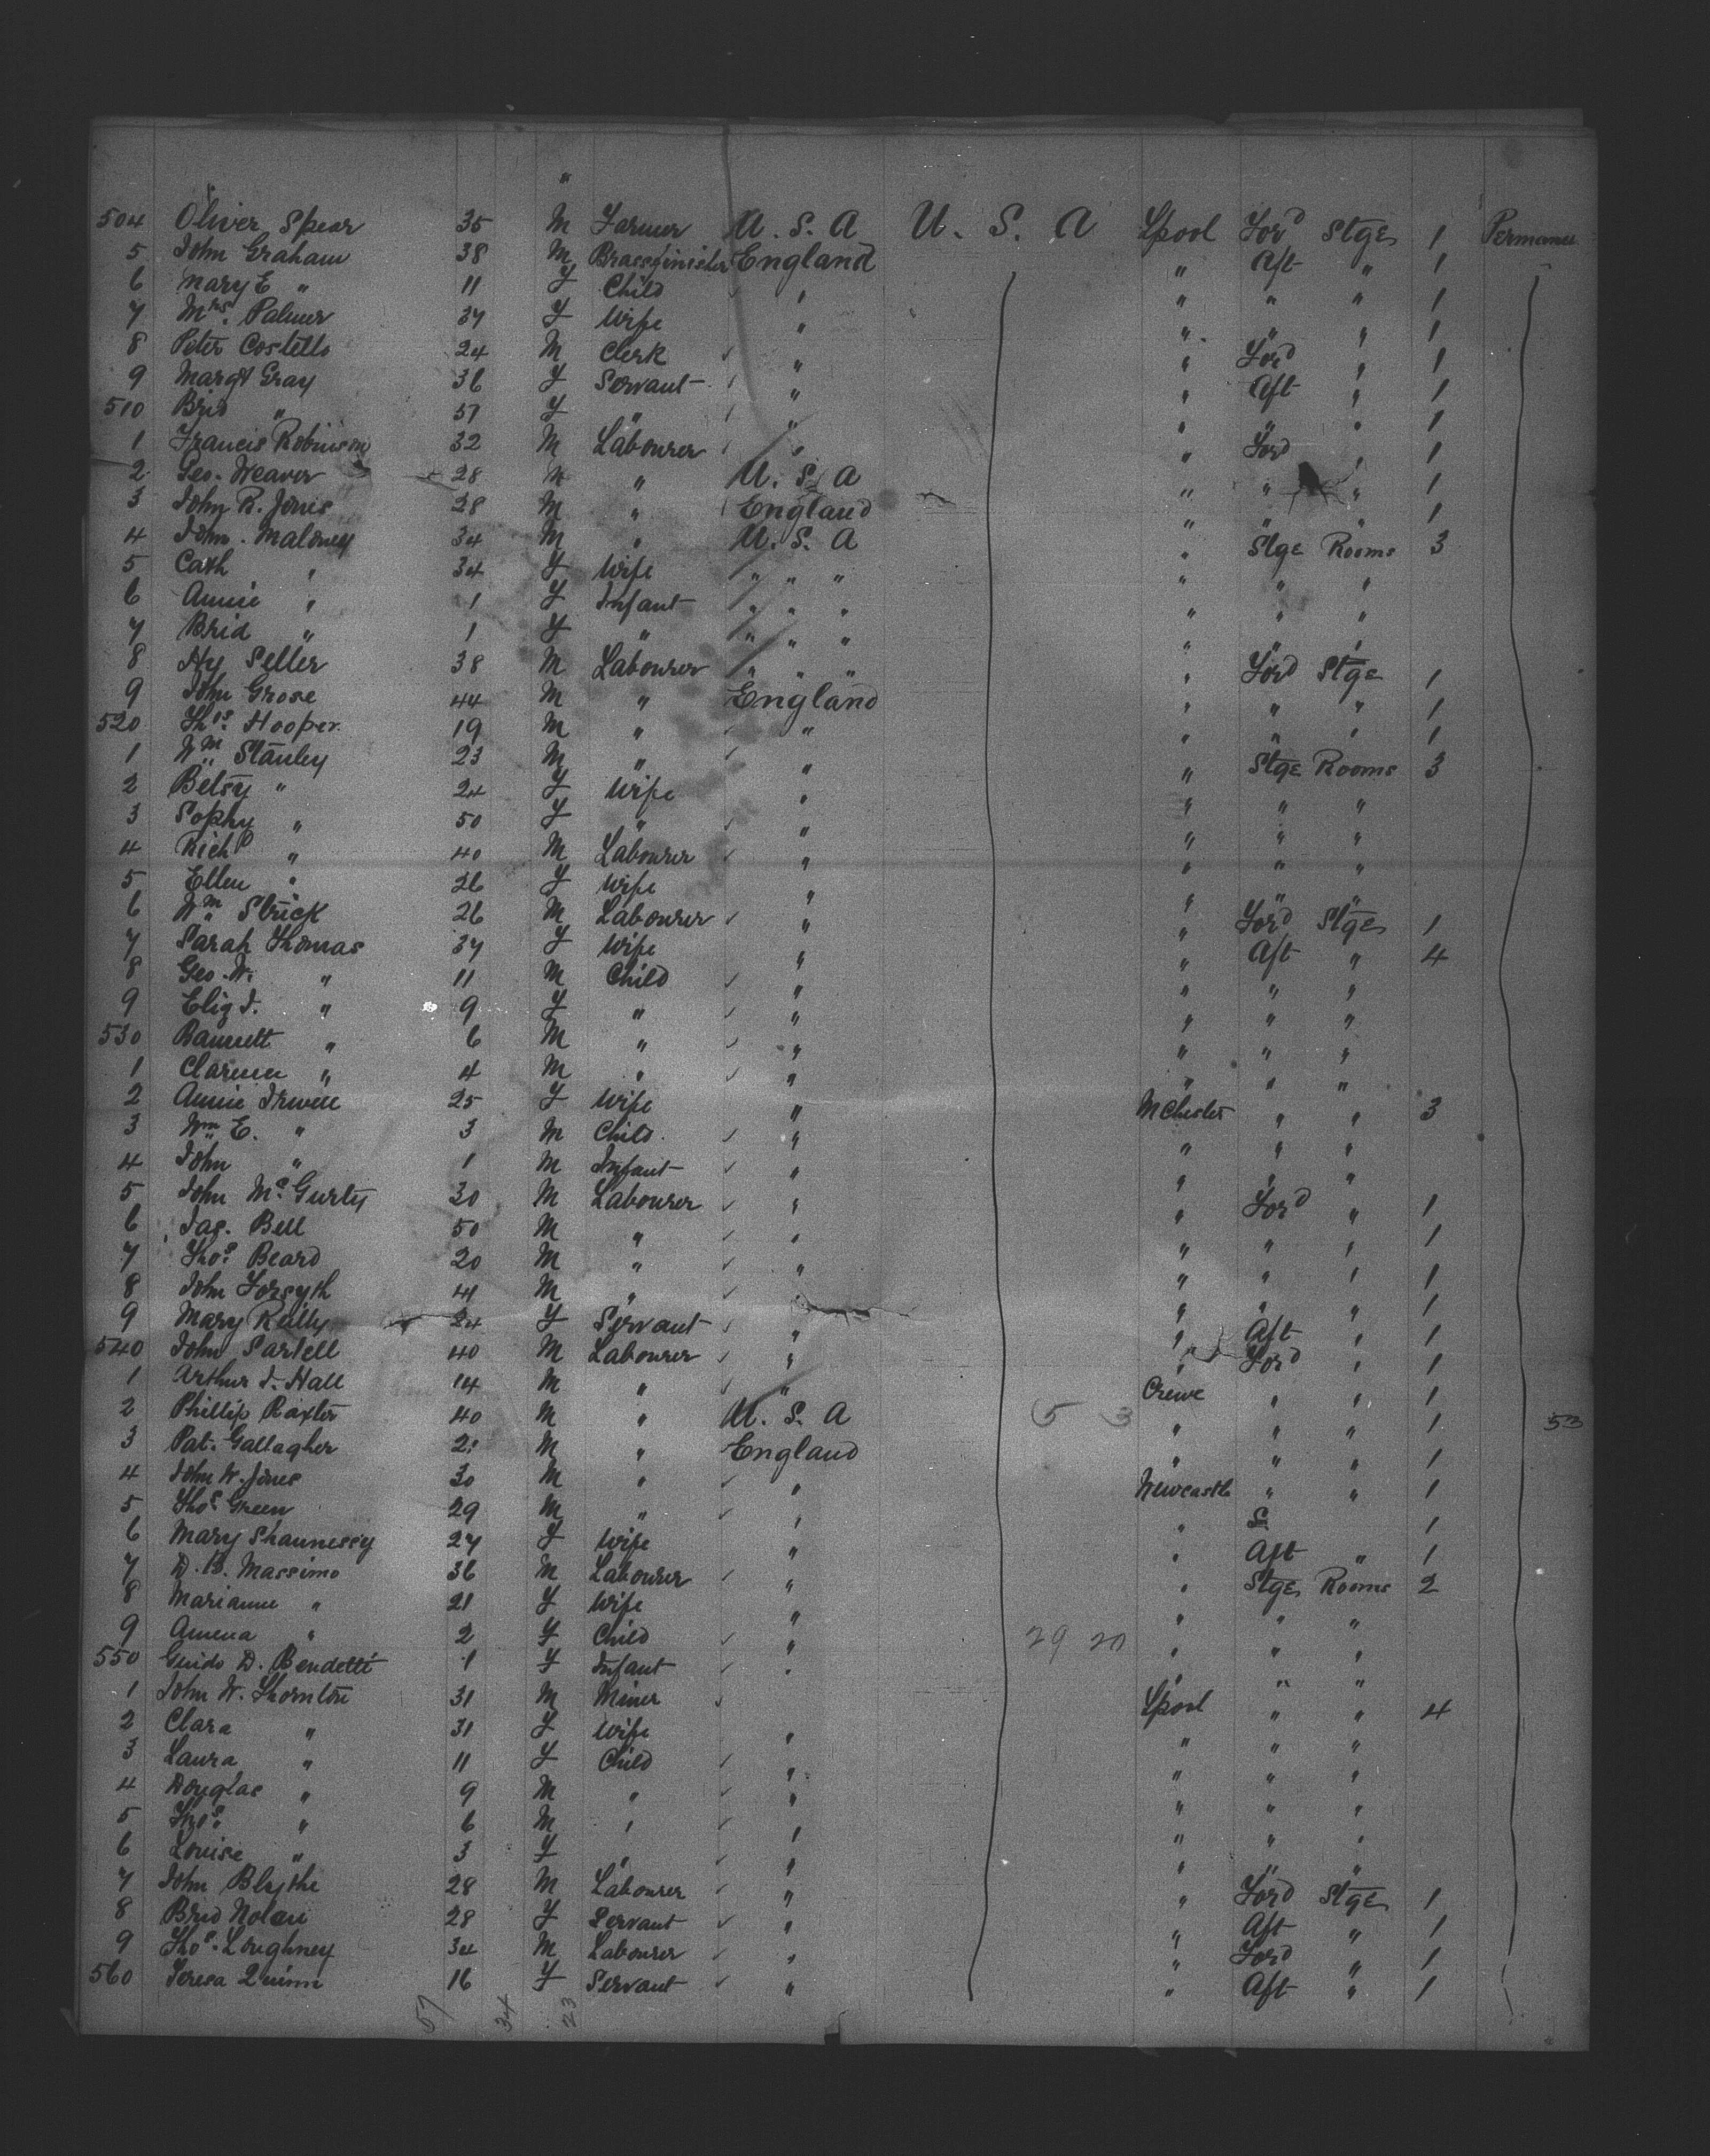 504 Oliver Spear 35 M Farmer U. S. A U. S. A Lpool Ford Stge 1 Permanen
5 John Graham 38 M Brassfinisher England " Aft " 1
6 Mary E " 11 F Child " " " " 1
7 Mrs. Palmer 37 F Wife " " " " 1
8 Peter Costello 24 M Clerk " " Ford " 1
9 Margt Gray 36 F Servant " " Aft " 1
510 Brid " 57 F " " " " " 1
1 Francis Robinson 32 M Labourer " " Ford " 1
2 Geo. Weaver 28 M " U. S. A " " " 1
3 John R. Jones 28 M " England " " " 1
4 John Maloney 34 M " U. S. A " Stge Rooms 3
5 Cath " 34 F Wife " " " " " "
6 Annie " 1 F Infant " " " " " "
7 Brid " 1 F " " " " " " "
8 Hy Seller 38 M Labourer " " " " Ford Stge 1
9 John Grose 44 M " England " " " 1
520 Thos. Hooper 19 M " " " " " 1
1 Wm Stanley 23 M " " " Stge Rooms 3
2 Betsy " 24 F Wife " " " "
3 Sophy " 50 F " " " " "
4 Richd " 40 M Labourer " " " "
5 Ellen " 26 F Wife " " " "
6 Wm Strick 26 M Labourer " " Ford Stge 1
7 Sarah Thomas 37 F Wife " " Aft " 4
8 Geo. W. " 11 M Child " " " "
9 Eliz J. " 9 F " " " " "
530 " 6 M " " " " "
1 " 4 M " " " " "
2 Annie Irwell 25 F Wife " MChester " " 3
3 Wm E. " 3 M Child " " " "
4 John " 1 M Infant " " " "
5 John McGurty 30 M Labourer " " Ford " 1
6 Jas. Bell 50 M " " " " " 1
7 Thos. Beard 20 M " " " " " 1
8 John Forsyth 41 M " " " " " 1
9 Mary Reilly 24 F Servant " " Aft " 1
540 John Sartell 40 M Labourer " " Ford " 1
1 Arthur J. Hall 14 M " " Crewe " " 1
2 Phillip Raxter 40 M " U. S. A 5 3 " " " 1 53
3 Pat. Gallagher 21 M " England " " " 1
4 John W. Jones 30 M " " Newcastle " " 1
5 Thos Green 29 M " " " S 1
6 Mary Shaunessy 27 F Wife " " Aft " 1
7 D. B. Massimo 36 M Labourer " " Stge Rooms 2
8 Marianne " 21 F Wife " " " "
9 Amena " 2 F Child " 29 20 " " "
550 Guido D. Bendetti 1 F Infant " " " "
1 John W. Thornton 31 M Miner Lpool " " 4
2 Clara " 31 F Wife " " " "
3 Laura " 11 F Child " " " "
4 Douglas " 9 M " " " " "
5 Thos. " 6 M " " " " "
6 Louise " 3 F " " " " "
7 John Blythe 28 M Labourer " " Ford Stge 1
8 Brid Nolan 28 F Servant " " Aft " 1
9 Thos. Loughney 34 M Labourer " " Ford " 1
560 Teresa Quinn 16 F Servant " " Aft " 1
57 34 23